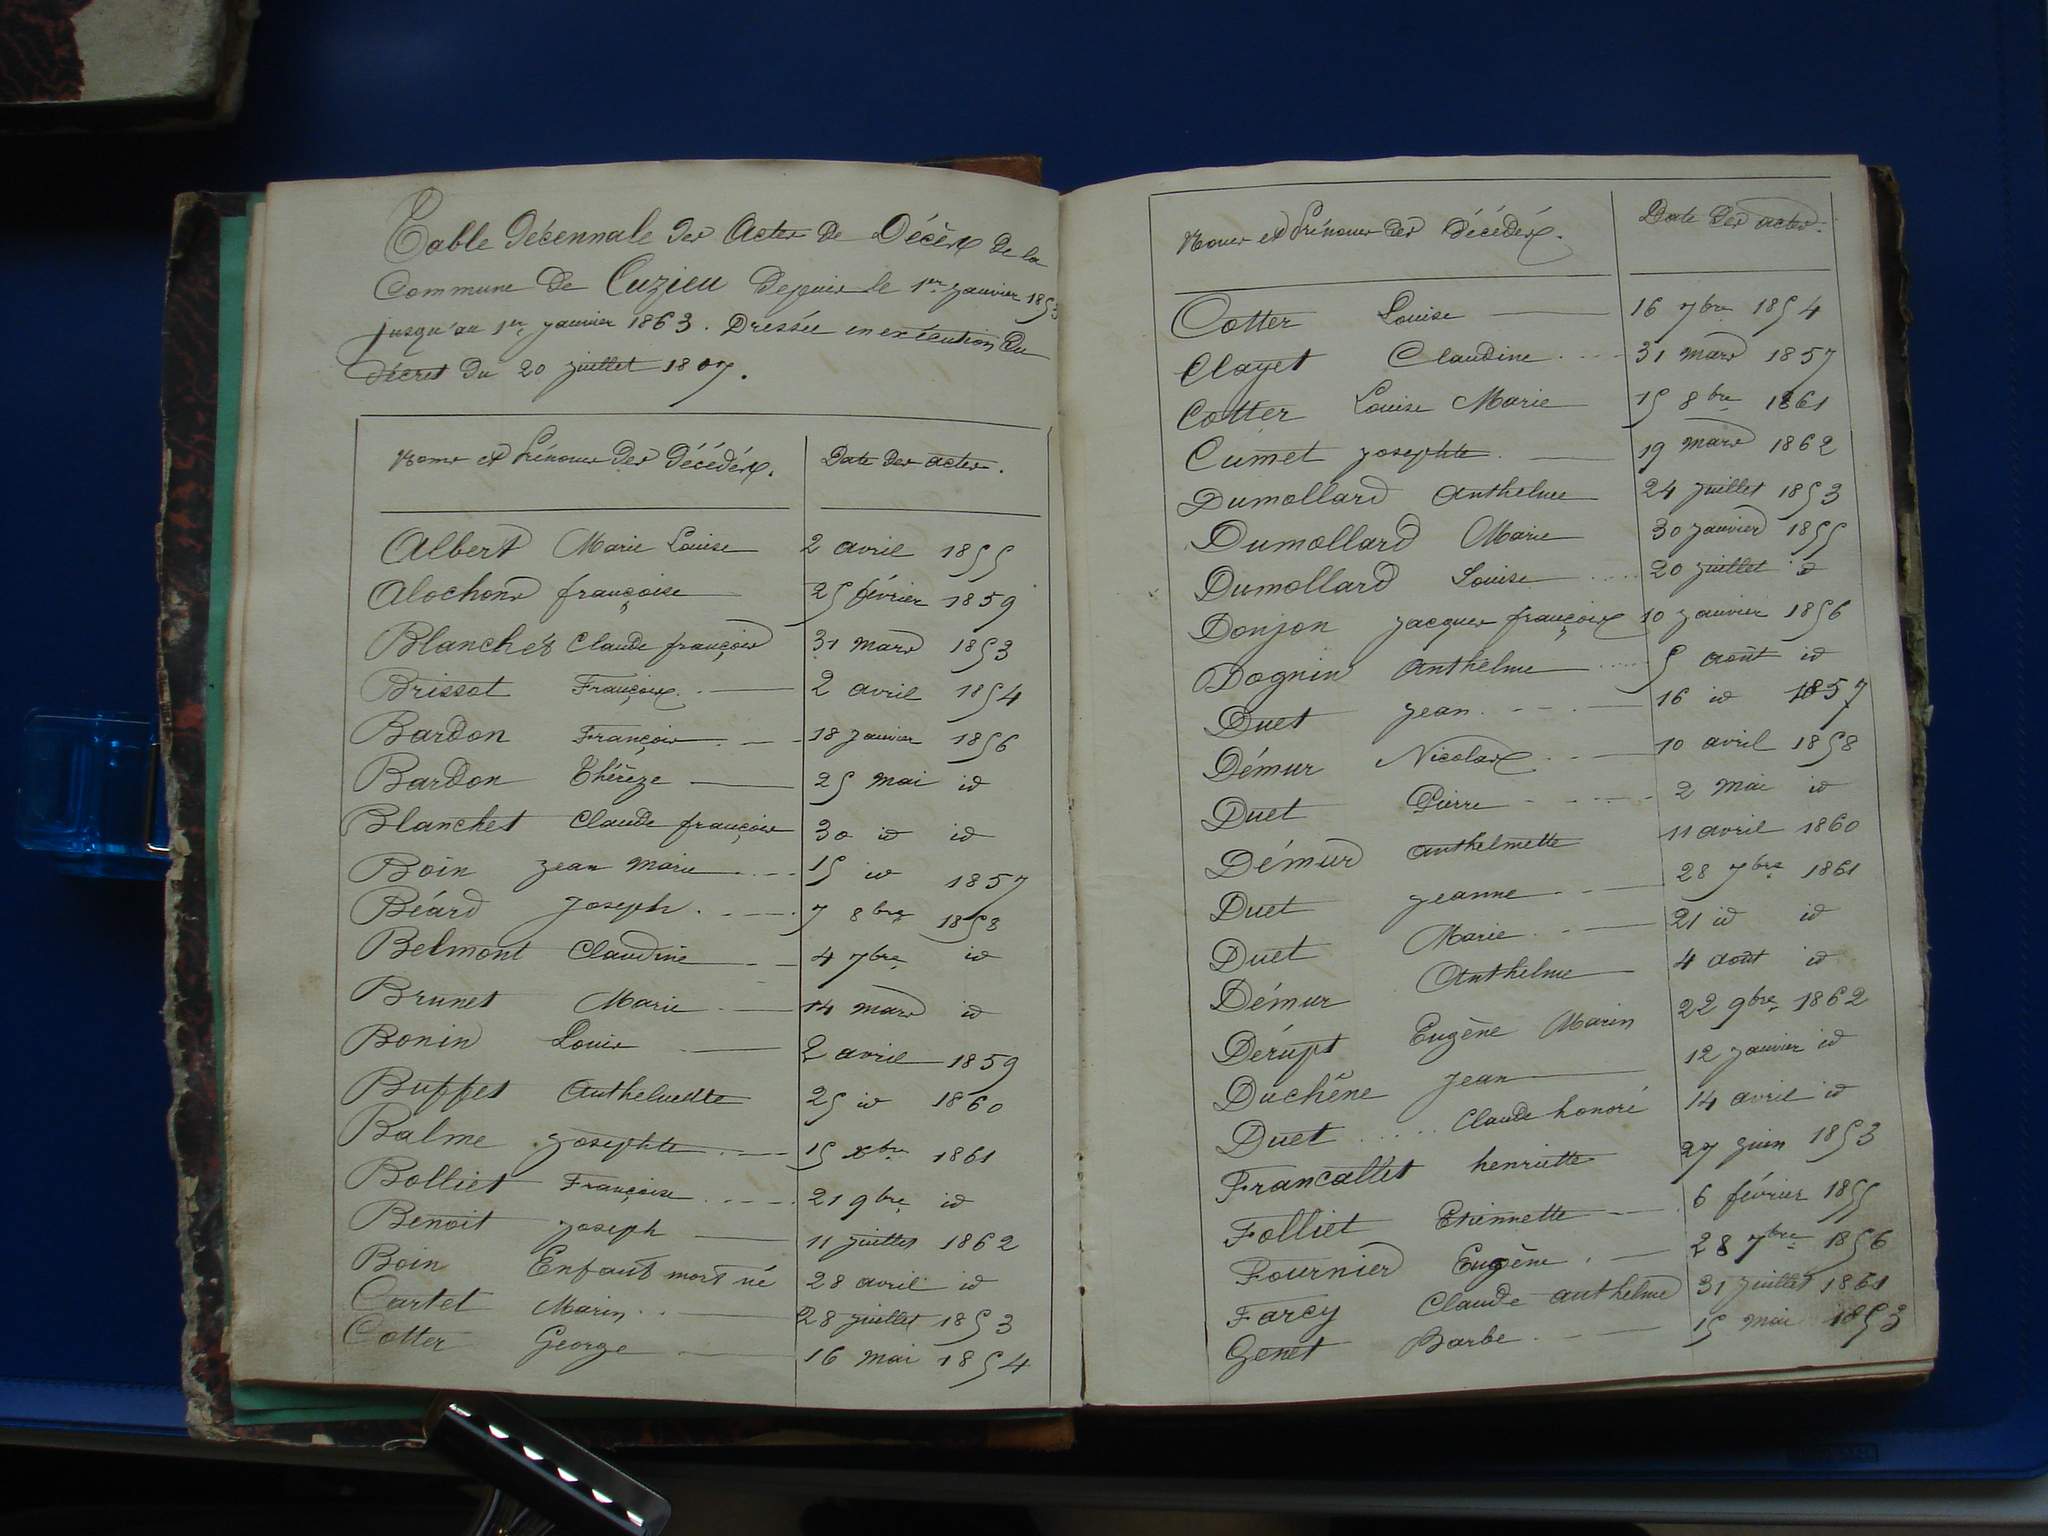 Table décennale des Actes de Décès de la
Commune de Cuzieu depuis le 1er janvier 1853
jusqu'au 1er janvier 1863. Dressée en exécution du
décret du 20 juillet 1807.
Noms et Prénoms des décédés. Date des actes.
Albert Marie Louise 2 avril 1855
Alochons françoise 25 février 1859
Blanchet Claude françois 31 mars 1853
Brissot François 2 avril 1854
Bardon François 18 janvier 1856
Bardon Thérèze 25 mai id
Blanchet Claude françois 30 id id
Boin jean marie 15 id 1857
Béard joseph 7 8bre 1858
Belmont Claudine 4 7bre id
Brunet Marie 14 mars id
Bonin Louis 2 avril 1859
Buffet Anthelmette 25 id 1860
Balme josephte 15 xbre 1861
Bolliet Françoise 21 9bre id
Benoit joseph 11 juillet 1862
Boin Enfant mort né 28 avril id
Cartet Marin 28 juillet 1853
Cotter George 16 mai 1854
Noms et Prénoms des décédés. Date des actes.
Cotter Louise 16 7bre 1854
Clayet Claudine 31 mars 1857
Cotter Louise Marie 15 8bre 1861
Cumet josephte 19 mars 1862
Dumollard Anthelme 24 juillet 1853
Dumollard Marie 30 janvier 1855
Dumollard Louise 20 juillet id
Donjon jacques françois 10 janvier 1856
Dognin Anthelme 5 août id
Duet jean 16 id 1857
Démur Nicolas 10 avril 1858
Duet Pierre 2 mai id
Démur Anthelmette 11 avril 1860
Duet jeanne 28 7bre 1861
Duet Marie 21 id id
Démur Anthelme 4 août id
Dérupt Eugène Marin 22 9bre 1862
Duchêne jean 12 janvier id
Duet Claude honoré 14 avril id
Francallet henriette 27 juin 1853
Folliet Etiennette 6 février 1855
Fournier Eugène 28 7bre 1856
Farcy Claude anthelme 31 juillet 1861
Genet Barbe 15 mai 1853